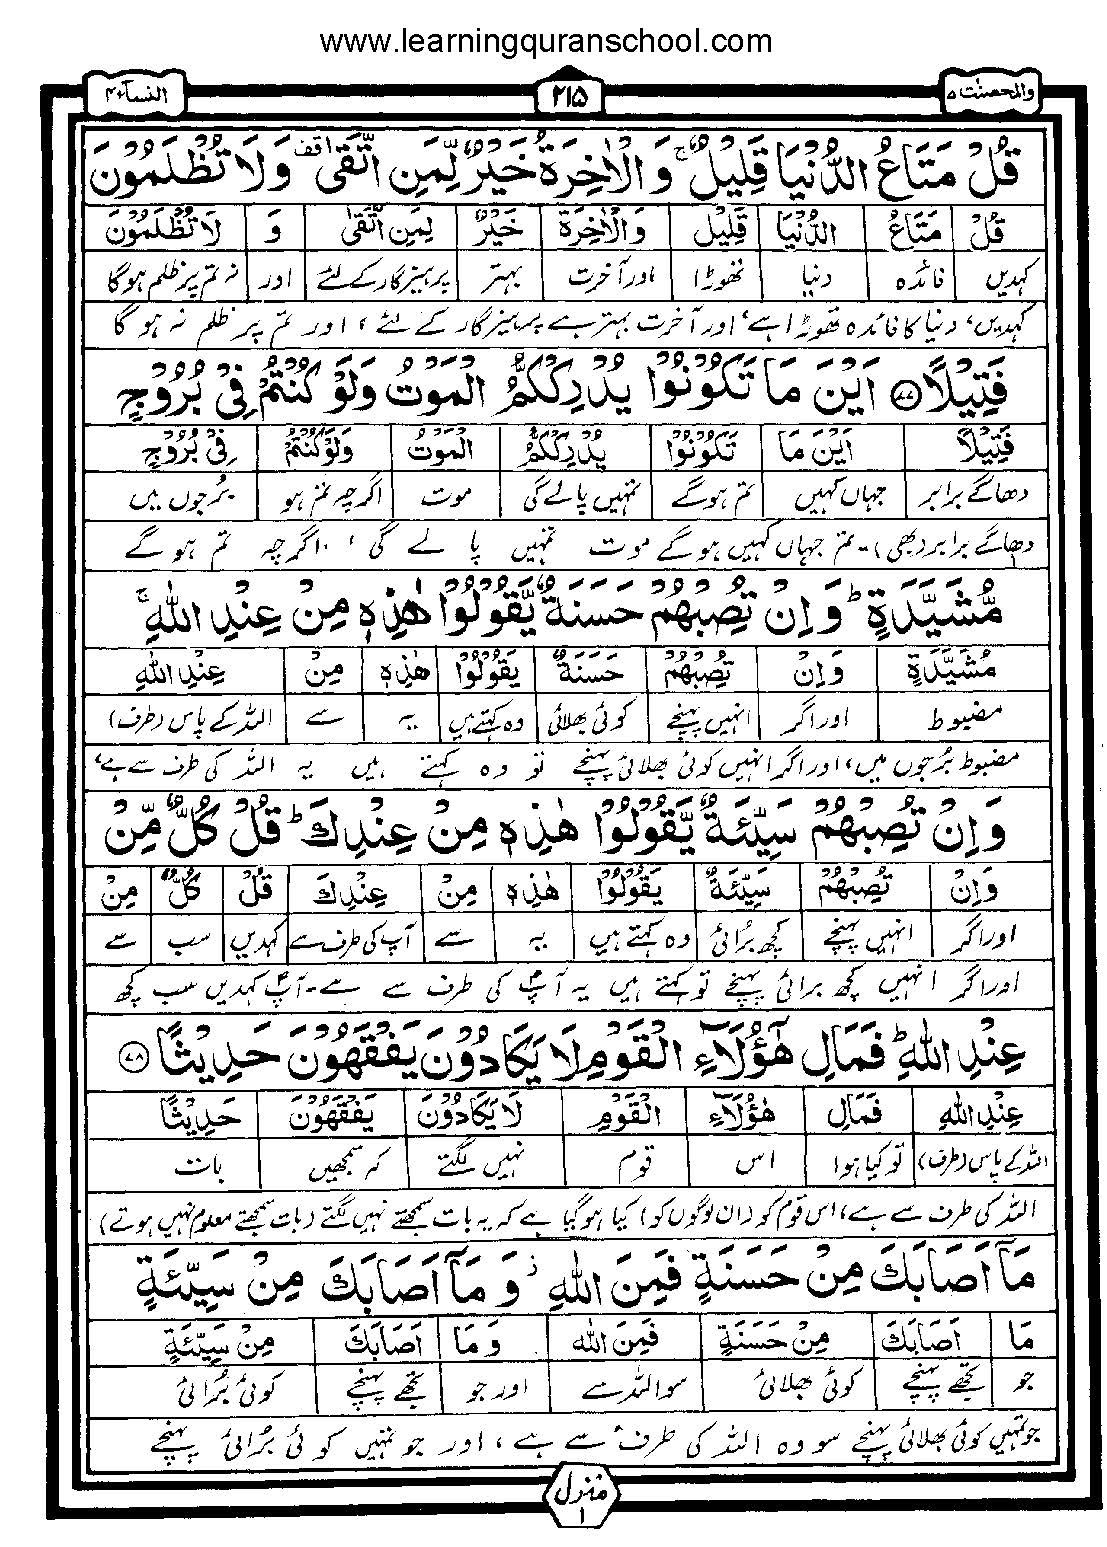 www.learningquranschool.com
والمحصنت ۵ ۲۱۵ النساء ۴
قُلْ مَتَاعُ الدُّنْيَا قَلِيلٌ ۚ وَالْاٰخِرَةُ خَيْرٌ لِّمَنِ اتَّقٰى وقف وَلَا تُظْلَمُوْنَ
قُلْ مَتَاعُ الدُّنْيَا قَلِيْلٌ وَالْاٰخِرَةُ خَيْرٌ لِّمَنِ اتَّقٰى وَ لَا تُظْلَمُوْنَ
کہدیں فائدہ دنیا تھوڑا اور آخرت بہتر پرہیزگار کے لئے اور نہ تم پر ظلم ہوگا
کہدیں، دنیا کا فائدہ تھوڑا ہے، اور آخرت بہتر ہے پرہیزگار کے لئے، اور تم پر ظلم نہ ہو گا
فَتِيْلًا ۷۷ اَيْنَ مَا تَكُوْنُوْا يُدْرِكْكُّمُ الْمَوْتُ وَلَوْ كُنْتُمْ فِيْ بُرُوْجٍ
فَتِيْلًا اَيْنَ مَا تَكُوْنُوْا يُدْرِكْكُّمُ الْمَوْتُ وَلَوْ كُنْتُمْ فِيْ بُرُوْجٍ
دھاگے برابر جہاں کہیں تم ہوگے تمہیں پالے گی موت اگرچہ تم ہو بُرجوں میں
دھاگے برابر (بھی)۔ تم جہاں کہیں ہو گے موت تمہیں پا لے گی، اگرچہ تم ہو گے
مُّشَيَّدَةٍ ؕ وَاِنْ تُصِبْهُمْ حَسَنَةٌ يَّقُوْلُوْا هٰذِهٖ مِنْ عِنْدِ اللّٰهِ ۚ
مُشَيَّدَةٍ وَاِنْ تُصِبْهُمْ حَسَنَةٌ يَقُوْلُوْا هٰذِهٖ مِنْ عِنْدِ اللّٰهِ
مضبوط اور اگر انہیں پہنچے کوئی بھلائی وہ کہتے ہیں یہ سے اللہ کے پاس (طرف)
مضبوط بُرجوں میں، اور اگر انہیں کوئی بھلائی پہنچے تو وہ کہتے ہیں یہ اللہ کی طرف سے ہے،
وَاِنْ تُصِبْهُمْ سَيِّئَةٌ يَّقُوْلُوْا هٰذِهٖ مِنْ عِنْدِكَ ؕ قُلْ كُلٌّ مِّنْ
وَاِنْ تُصِبْهُمْ سَيِّئَةٌ يَقُوْلُوْا هٰذِهٖ مِنْ عِنْدِكَ قُلْ كُلٌّ مِنْ
اور اگر انہیں پہنچے کچھ بُرائی وہ کہتے ہیں یہ سے آپ کی طرف سے کہدیں سب سے
اور اگر انہیں کچھ برائی پہنچے تو کہتے ہیں یہ آپؐ کی طرف سے ہے۔ آپؐ کہدیں سب کچھ
عِنْدِ اللّٰهِ ؕ فَمَالِ هٰٓؤُلَآءِ الْقَوْمِ لَا يَكَادُوْنَ يَفْقَهُوْنَ حَدِيْثًا ۷۸
عِنْدِ اللّٰهِ فَمَالِ هٰٓؤُلَآءِ الْقَوْمِ لَا يَكَادُوْنَ يَفْقَهُوْنَ حَدِيْثًا
اللہ کے پاس (طرف) تو کیا ہوا اس قوم نہیں لگتے کہ سمجھیں بات
اللہ کی طرف سے ہے، اس قوم کو (ان لوگوں کو) کیا ہو گیا ہے کہ یہ بات سمجھتے نہیں لگتے (بات سمجھتے معلوم نہیں ہوتے)
مَاۤ اَصَابَكَ مِنْ حَسَنَةٍ فَمِنَ اللّٰهِ ۫ وَمَاۤ اَصَابَكَ مِنْ سَيِّئَةٍ
مَا اَصَابَكَ مِنْ حَسَنَةٍ فَمِنَ اللّٰهِ وَمَا اَصَابَكَ مِنْ سَيِّئَةٍ
جو تجھے پہنچے کوئی بھلائی سو اللہ سے اور جو تجھے پہنچے کوئی بُرائی
جو تمہیں کوئی بھلائی پہنچے سو وہ اللہ کی طرف سے ہے، اور جو تمہیں کوئی بُرائی پہنچے
منزل ۱